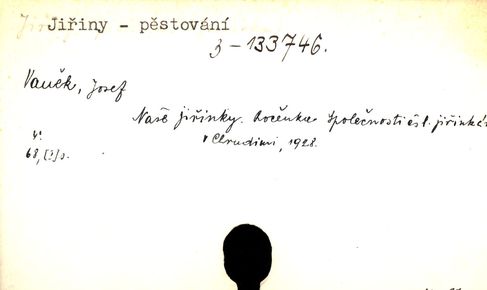 Jiřiny - pěstování
3-133746.
Vaněk, Josef
Naše jiřinky. Ročenka Společnosti čsl. jiřinkář
v Chrudimi, 1928.
4°.
68, [3] s.